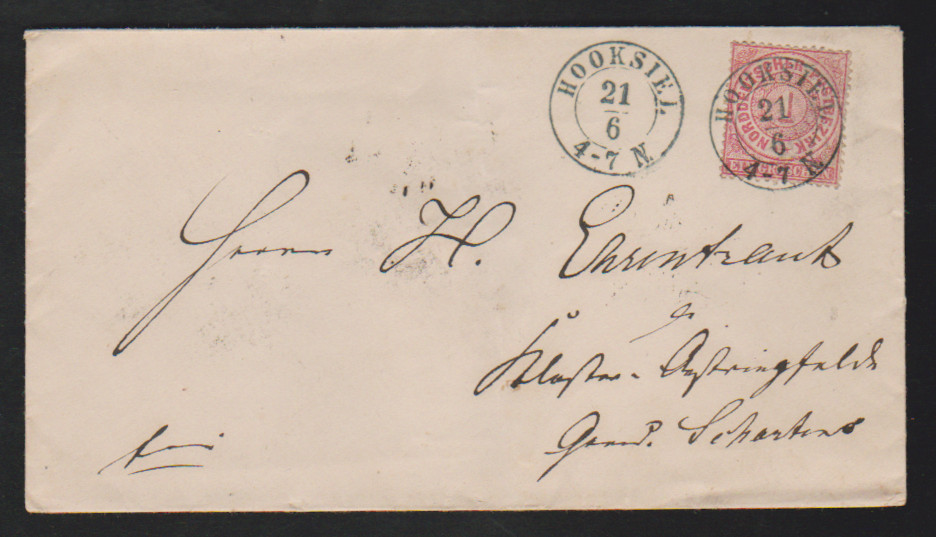 HOOKSIEL
21
6
4-7 N.
HOOKSIEL
21
6
4-7 N.
NORDDEUTSCHER POSTBEZIRK
1
EIN GROSCHEN
Herrn H. Ehrentraut
Kloster-Oestringfelde
Schortens
frei